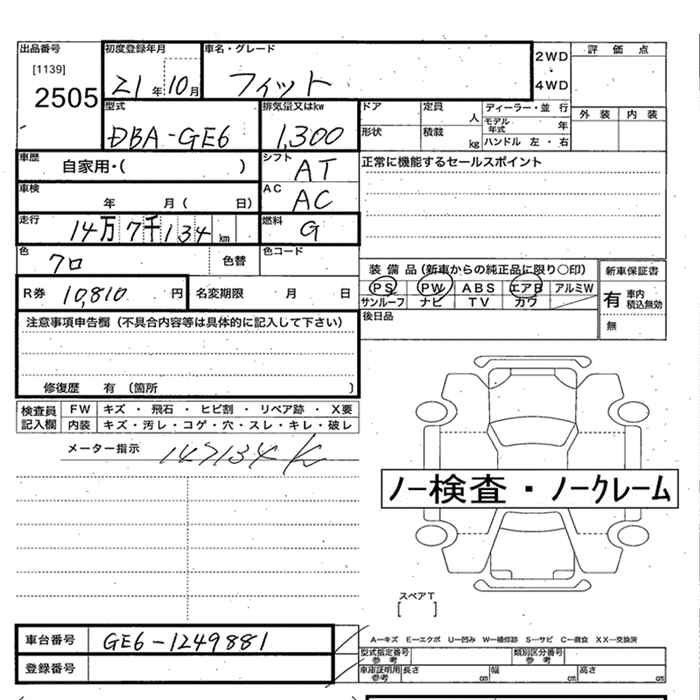 出品番号 初度登録年月 車名・グレード 2WD 評価点
[1139]
2505 21年10月 フィット ・4WD
型式 排気量又はkw ドア 定員 人 ディーラー・並行 外装 内装
DBA-GE6 1,300 形状 積載 kg モデル年式 年
ハンドル 左・右
車歴 自家用・( ) シフト AT 正常に機能するセールスポイント
車検 年 月( 日) AC AC
走行 14万7千134km 燃料 G
色 クロ 色替 色コード
装備品(新車からの純正品に限り○印) 新車保証書
R券 10,810円 名変期限 月 日 PS PW ABS エアB アルミW 有 車内積込無効
サンルーフ ナビ TV カワ 無
注意事項申告欄(不具合内容等は具体的に記入して下さい) 後日品
修復歴 有(箇所 )
検査員記入欄 FW キズ・飛石・ヒビ割・リペア跡・X要
内装 キズ・汚レ・コゲ・穴・スレ・キレ・破レ
メーター指示 147134K
ノー検査・ノークレーム
スペアT
[ ]
車台番号 GE6-1249881
A−キズ E−エクボ U−凹み W−補修跡 S−サビ C−腐食 XX−交換済
型式指定番号参考 類別区分番号参考
登録番号 車庫証明用参考 長さ cm 幅 cm 高さ cm